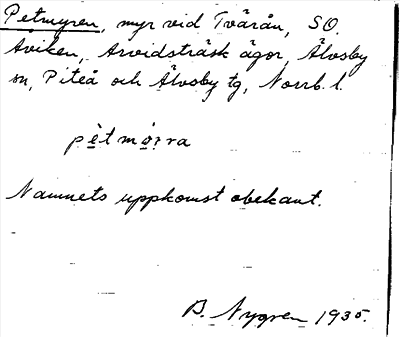 Petmyren, myr vid Tvärån, SO.
Åviken, Arvidsträsk ägor, Älvsby
sn, Piteå och Älvsby tg, Norrb. l.
pètmỳrra
Namnets uppkomst obekant.
B. Nygren 1935.